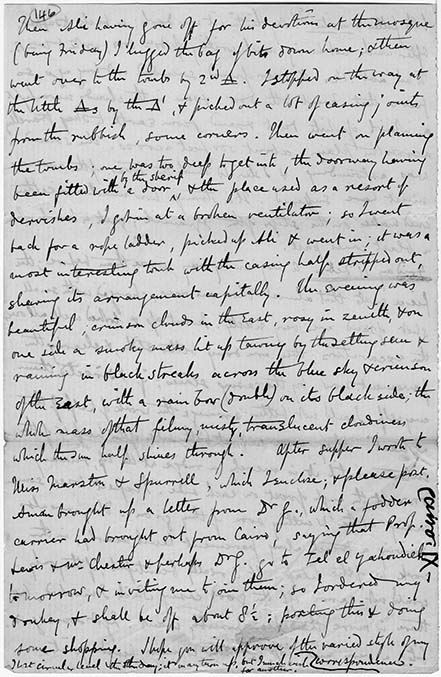 146
Then Ali having gone off for his devotions at the mosque
(being Friday) I lugged the bag of bits down home; & then
went over to the tombs by 2nd Δ. I stopped on the way at
the little Δs by the Δ', & picked out a lot of casing joints
from the rubbish, some corners. Then went on planning
the tombs; one was too deep to get into, the doorway having
been fitted with a door by the sherif & the place used as a resort of
dervishes, I got in at a broken ventilator; so I went
back for a rope ladder, picked up Ali & went in; it was a
most interesting tomb with the casing half stripped out,
shewing its arrangement capitally. The evening was
beautiful, crimson clouds in the East, rosy in zenith, & on
one side a smoky mass lit up tawny by the setting sun &
raining in black streaks across the blue sky & crimson
of the East, with a rain bow (double) on its black side; the
whole mass of that filmy misty, translucent cloudiness
which the sun half shines through. After supper I wrote to
Miss Marston & Spurrell, which I enclose; & please post.
brought up a letter from Dr G., which a fodder
carrier had brought out from Cairo, saying that Prof.
Lewis & Mr Chester & perhaps Dr G. go to Tel el Yahoudieh
tomorrow, & inviting me to join them; so I ordered my
donkey, & shall be off about 8½; posting this & doing
some shopping. I hope you will approve of the varied style of my
correspondence.
Cairo. IX
for another.